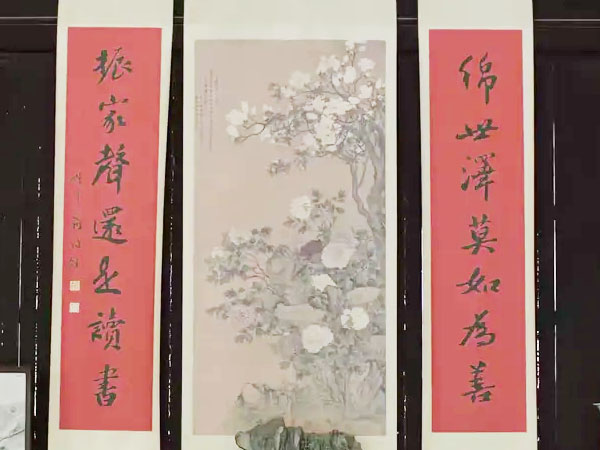 綿世澤莫如為善
振家聲還是讀書